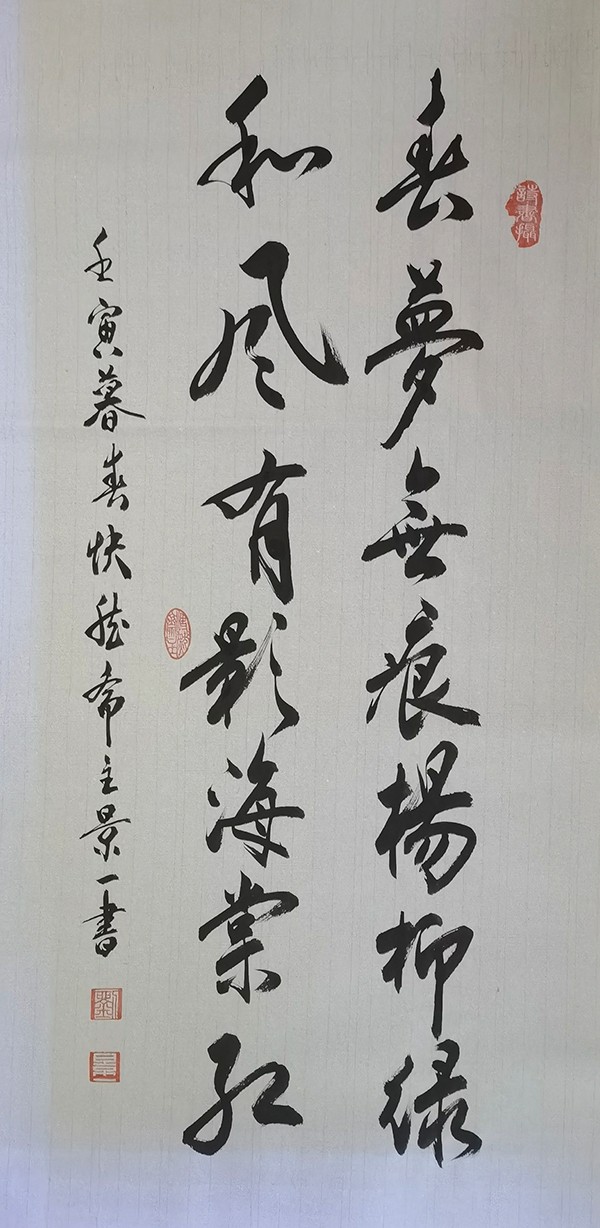 春夢無痕楊柳绿
和风有影海棠红
壬寅暮春快然斋主景一書